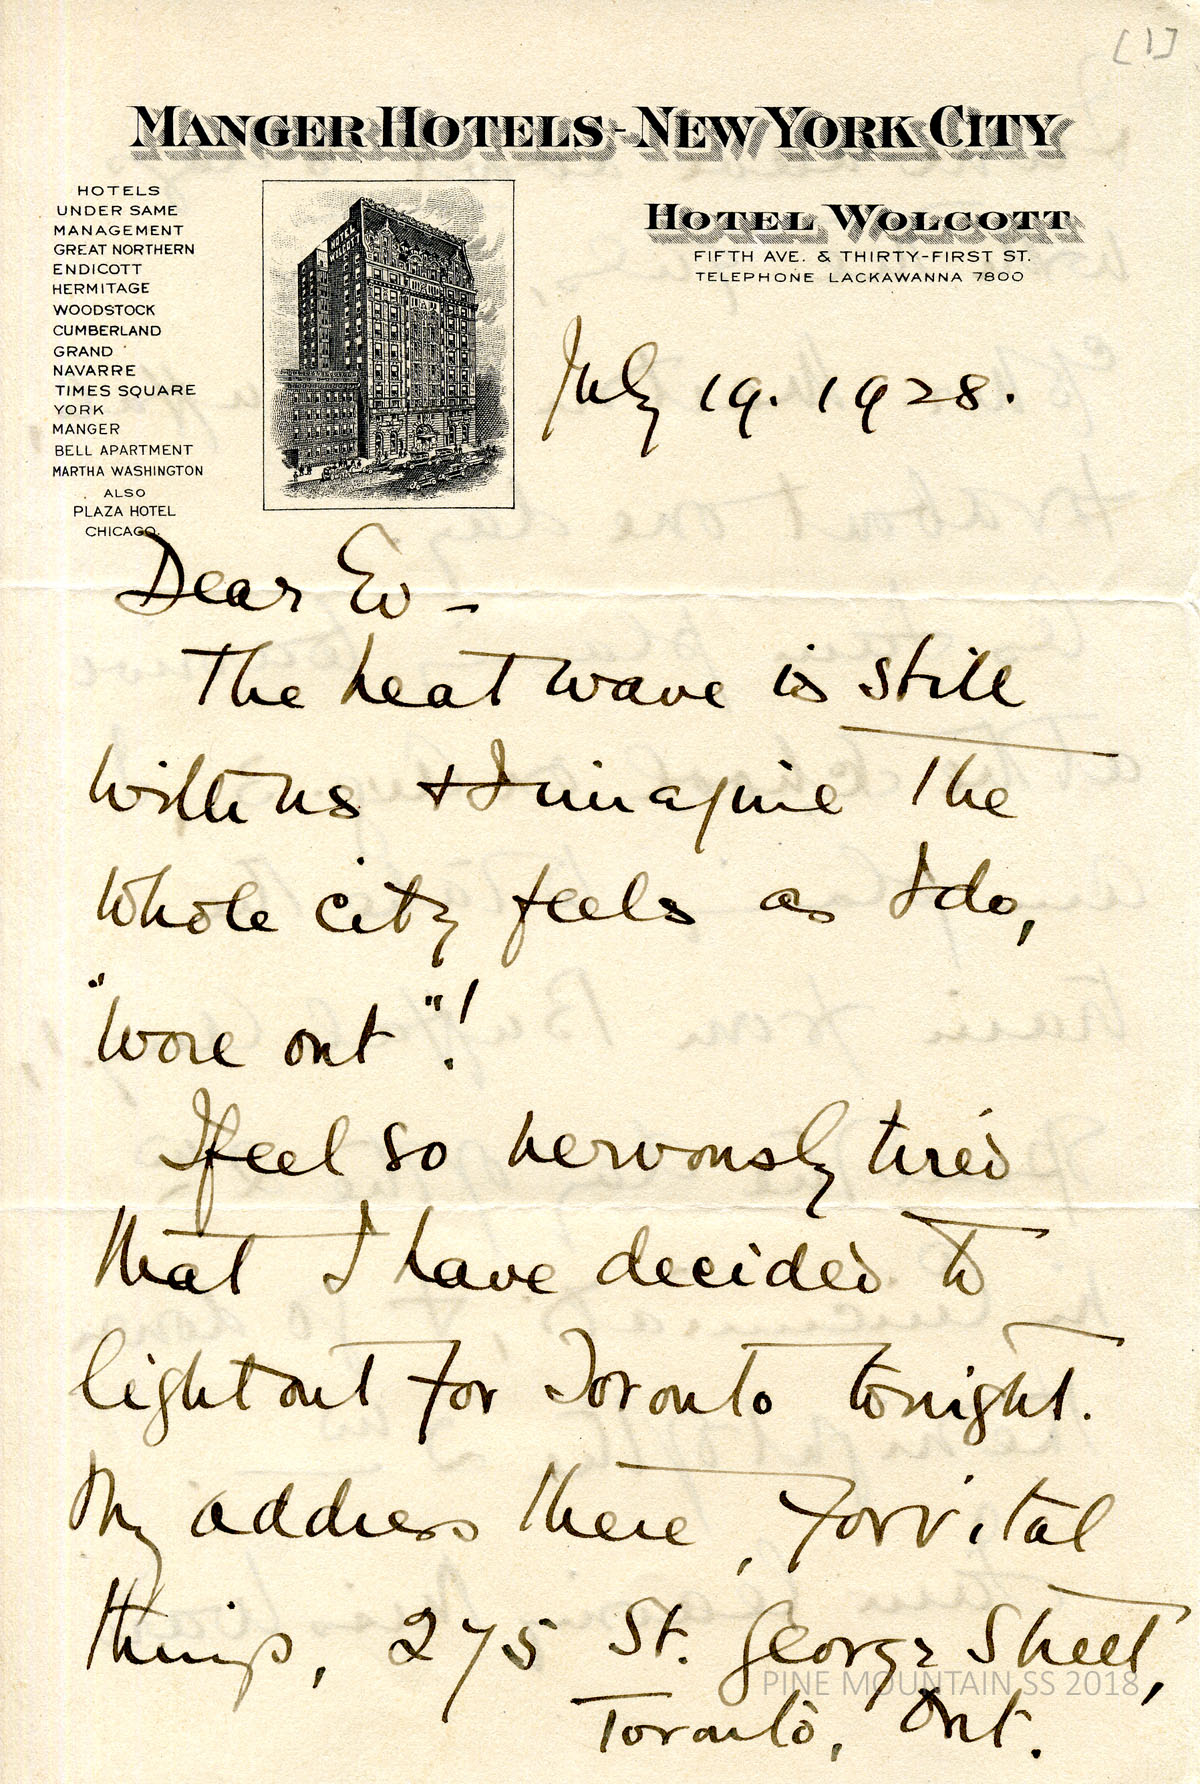 [1]
MANGER HOTELS - NEW YORK CITY
HOTELS
UNDER SAME
MANAGEMENT
GREAT NORTHERN
ENDICOTT
HERMITAGE
WOODSTOCK
CUMBERLAND
GRAND
NAVARRE
TIMES SQUARE
YORK
MANGER
BELL APARTMENT
MARTHA WASHINGTON
ALSO
PLAZA HOTEL
CHICAGO.
HOTEL WOLCOTT
FIFTH AVE. & THIRTY-FIRST ST.
TELEPHONE LACKAWANNA 7800
July 19. 1928.
Dear Ev -
The heat wave is still
with us & I imagine the
whole city feels as I do,
"wore out"!
I feel so nervously tired
that I have decided to
light out for Toronto tonight.
My address there, for vital
things, 275 St. George Street,
Toronto, Ont.
PINE MOUNTAIN SS 2018